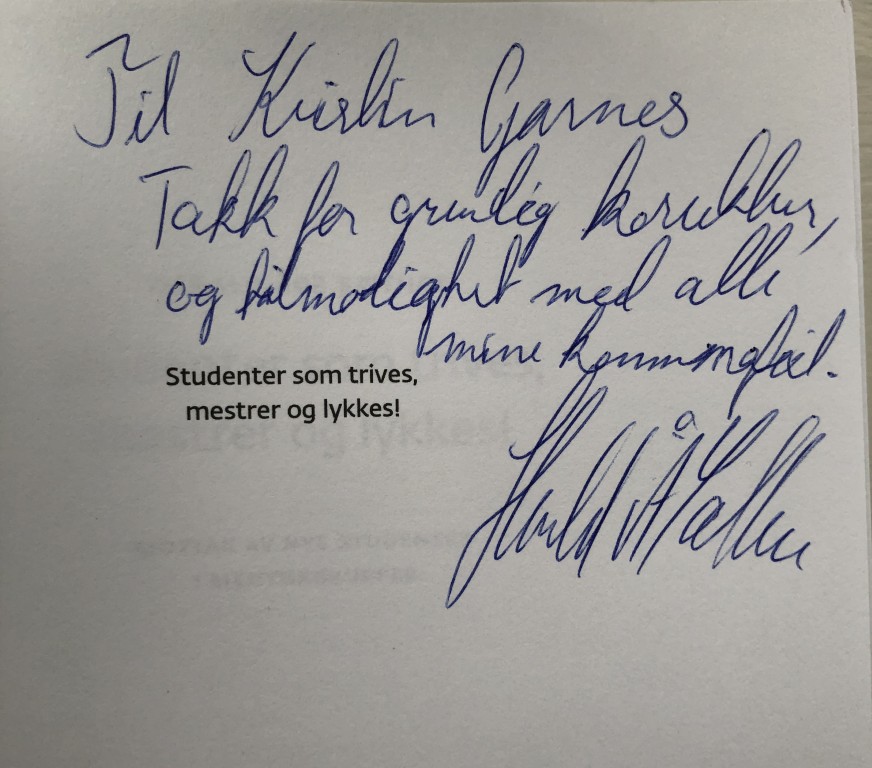 Til Kristin Garnes
Takk for grundig korrektur,
og tålmodighet med alle
mine kommafeil.
Studenter som trives,
mestrer og lykkes!
Harald Å.